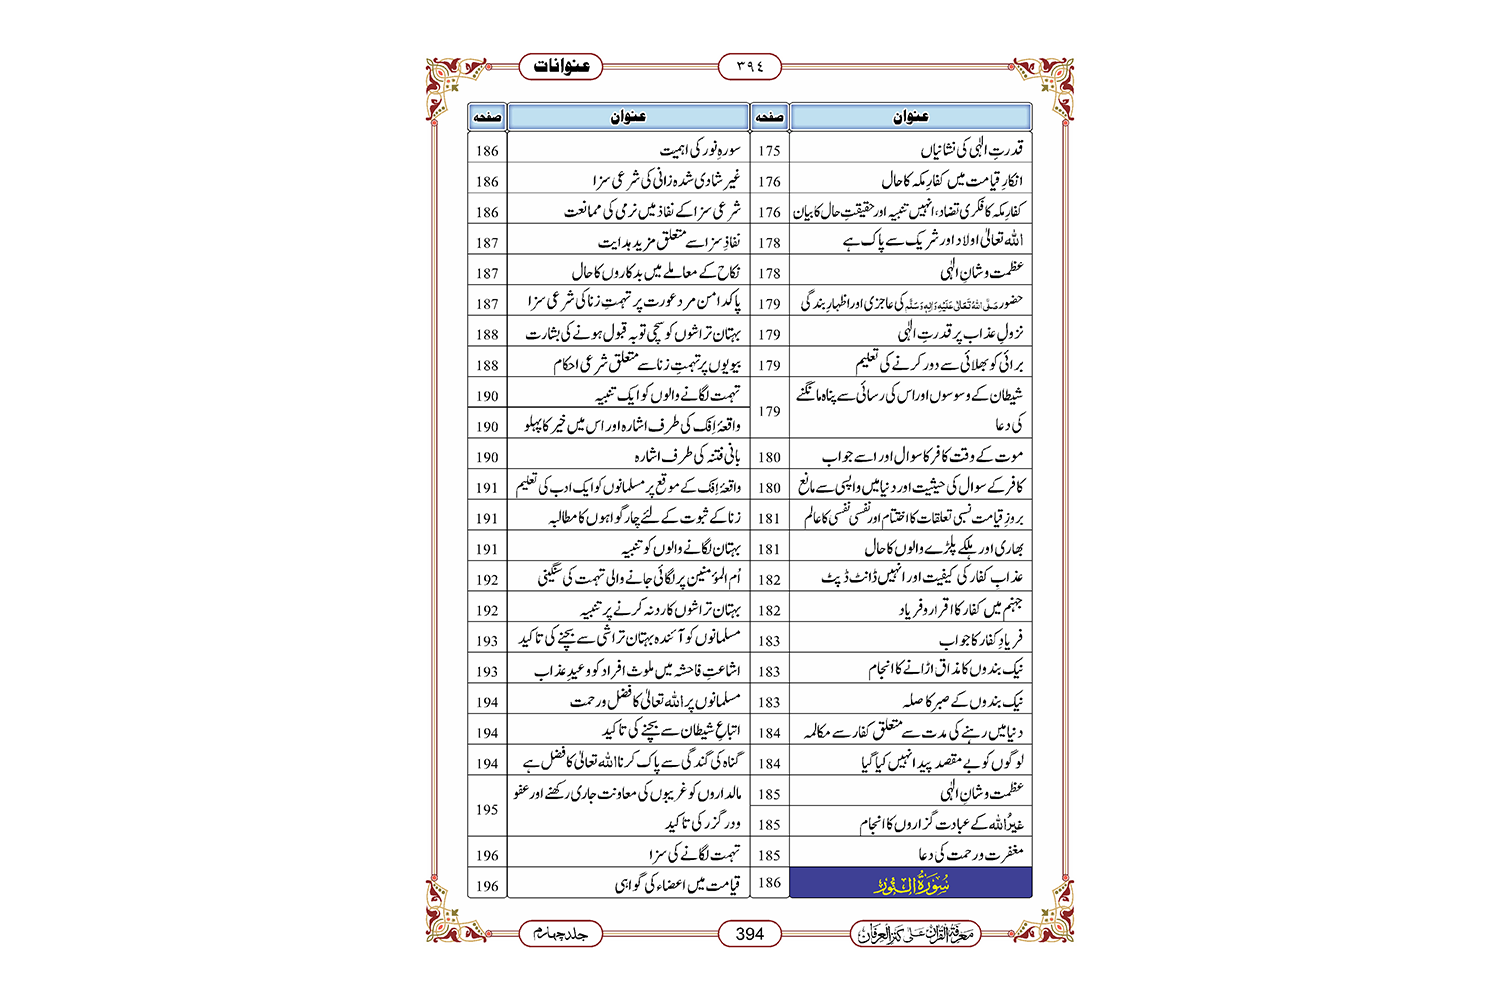 عنوانات
٣٩٤
عنوان صفحہ
قدرتِ الٰہی کی نشانیاں 175
انکارِ قیامت میں کفارِ مکہ کا حال 176
کفارِ مکہ کا فکری تضاد، انہیں تنبیہ اور حقیقتِ حال کا بیان 176
اللہ تعالیٰ اولاد اور شریک سے پاک ہے 178
عظمت و شانِ الٰہی 178
حضور صَلَّی اللہُ تَعَالٰی عَلَیْہِ وَاٰلِہٖ وَسَلَّم کی عاجزی اور اظہارِ بندگی 179
نزولِ عذاب پر قدرتِ الٰہی 179
برائی کو بھلائی سے دور کرنے کی تعلیم 179
شیطان کے وسوسوں اور اس کی رسائی سے پناہ مانگنے
کی دعا 179
موت کے وقت کافر کا سوال اور اسے جواب 180
کافر کے سوال کی حیثیت اور دنیا میں واپسی سے مانع 180
بروزِ قیامت نسبی تعلقات کا اختتام اور نفسی نفسی کا عالم 181
بھاری اور ہلکے پلڑے والوں کا حال 181
عذابِ کفار کی کیفیت اور انہیں ڈانٹ ڈپٹ 182
جہنم میں کفار کا اقرار و فریاد 182
فریادِ کفار کا جواب 183
نیک بندوں کا مذاق اڑانے کا انجام 183
نیک بندوں کے صبر کا صلہ 183
دنیا میں رہنے کی مدت سے متعلق کفار سے مکالمہ 184
لوگوں کو بے مقصد پیدا نہیں کیا گیا 184
عظمت و شانِ الٰہی 185
غیرُ اللہ کے عبادت گزاروں کا انجام 185
مغفرت و رحمت کی دعا 185
سُوْرَۃُ النُّوْر 186
عنوان صفحہ
سورہِ نور کی اہمیت 186
غیر شادی شدہ زانی کی شرعی سزا 186
شرعی سزا کے نفاذ میں نرمی کی ممانعت 186
نفاذِ سزا سے متعلق مزید ہدایت 187
نکاح کے معاملے میں بدکاروں کا حال 187
پاکدامن مرد عورت پر تہمتِ زنا کی شرعی سزا 187
بہتان تراشوں کو سچی توبہ قبول ہونے کی بشارت 188
بیویوں پر تہمتِ زنا سے متعلق شرعی احکام 188
تہمت لگانے والوں کو ایک تنبیہ 190
واقعۂ اِفک کی طرف اشارہ اور اس میں خیر کا پہلو 190
بانی فتنہ کی طرف اشارہ 190
واقعۂ اِفک کے موقع پر مسلمانوں کو ایک ادب کی تعلیم 191
زنا کے ثبوت کے لئے چار گواہوں کا مطالبہ 191
بہتان لگانے والوں کو تنبیہ 191
اُم المؤمنین پر لگائی جانے والی تہمت کی سنگینی 192
بہتان تراشوں کا رد نہ کرنے پر تنبیہ 192
مسلمانوں کو آئندہ بہتان تراشی سے بچنے کی تاکید 193
اشاعتِ فاحشہ میں ملوث افراد کو وعیدِ عذاب 193
مسلمانوں پر اللہ تعالیٰ کا فضل و رحمت 194
اتباعِ شیطان سے بچنے کی تاکید 194
گناہ کی گندگی سے پاک کرنا اللہ تعالیٰ کا فضل ہے 194
مالداروں کو غریبوں کی معاونت جاری رکھنے اور عفو
و درگزر کی تاکید 195
تہمت لگانے کی سزا 196
قیامت میں اعضاء کی گواہی 196
معرفۃ القرآن علٰی کنز العرفان
394
جلد چہارم